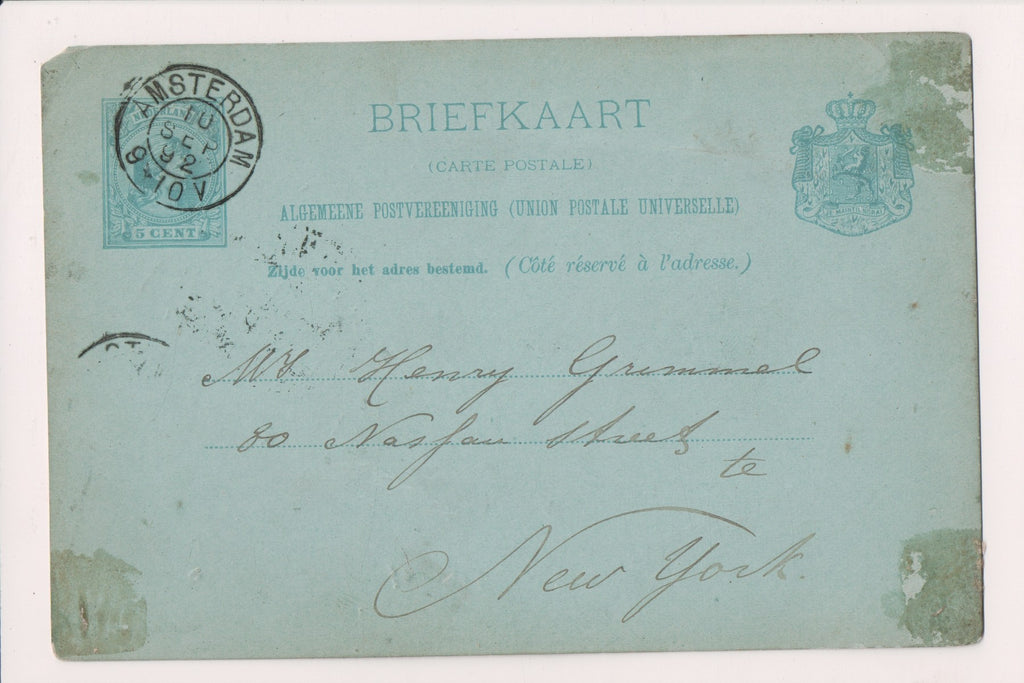 BRIEFKAART
(CARTE POSTALE)
ALGEMEENE POSTVEREENIGING (UNION POSTALE UNIVERSELLE)
Zijde voor het adres bestemd. (Côté réservé à l'adresse.)
AMSTERDAM
10
SEP
92
9-10V
5 CENT
JE MAINTIENDRAI
Mr Henry Grimmel
80 Nassau street
te
New York.